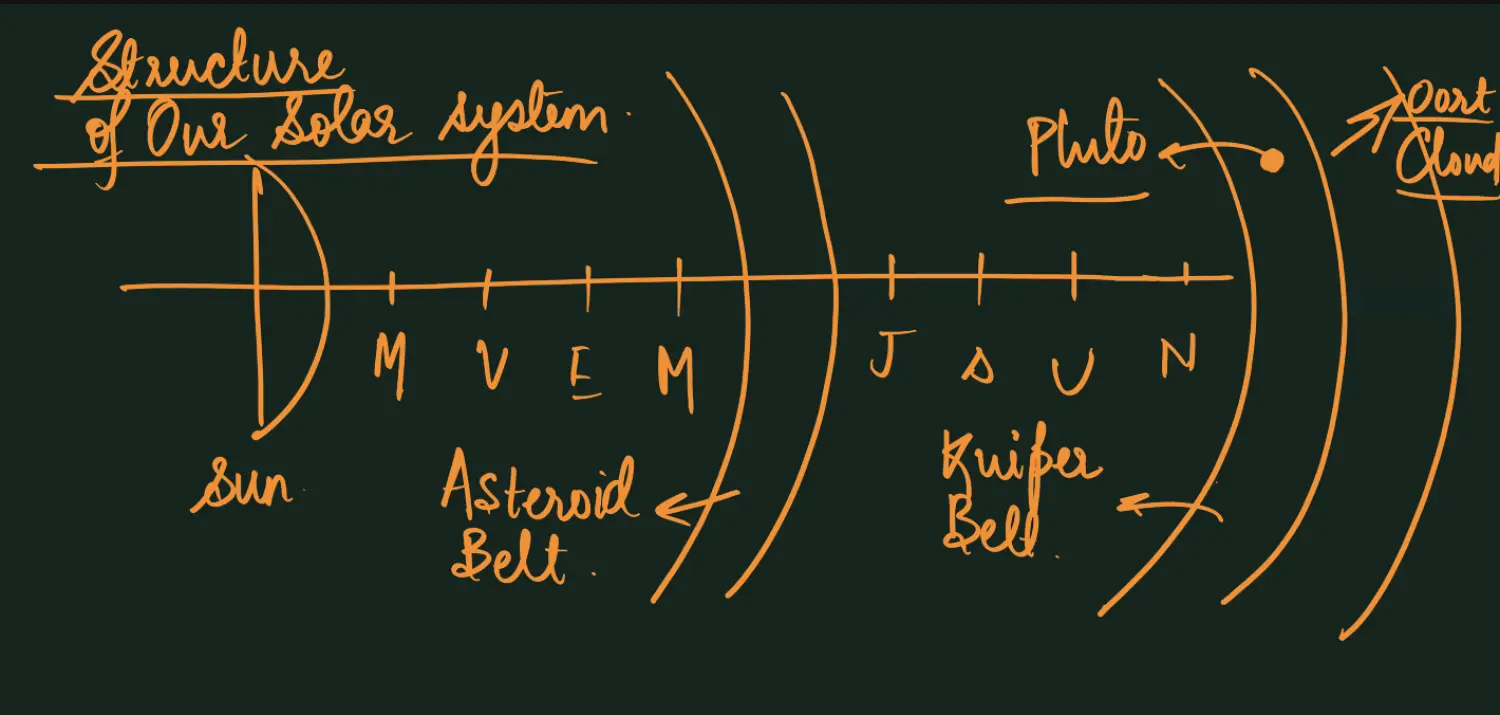 Structure
of Our Solar system.
Pluto
Oort
Cloud
M V E M J S U N
Sun.
Asteroid
Belt.
Kuiper
Belt.